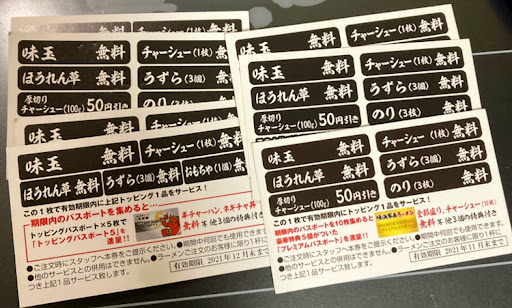 味玉 無料
チャーシュー(1枚)
ほうれん草 無料
うずら(3個)
厚切りチャーシュー(100g) 50円引き
のり(3枚)
味玉 無料
チャーシュー(1枚)
味玉 無料
チャーシュー(1枚) 無料
ほうれん草 無料
うずら(3個) 無料
おもちゃ(1個) 無料
この1枚で有効期限内に上記トッピング1品をサービス!
期限内のパスポートを集めると…
トッピングパスポート×5枚で
「トッピングパスポート5」を
進呈!!
半チャーハン、ネギチャ丼
無料 等 他3個の特典付き
●ご注文時にスタッフへ本券をご提示ください。●期間中何回でも使用できます。
●他のサービスとの併用はできません。●ラーメンご注文のお客様に限り1杯に
つき上記1品サービス致します。
有効期限 2021年11月末まで
味玉 無料
チャーシュー(1枚)
味玉 無料
チャーシュー(1枚)
ほうれん草 無料
うずら(3個)
厚切りチャーシュー(100g) 50円引き
のり(3枚)
味玉 無料
チャーシュー(1枚) 無料
ほうれん草 無料
うずら(3個) 無料
厚切りチャーシュー(100g) 50円引き
のり(3枚) 無料
この1枚で有効期限内にトッピング1品をサービス!
期限内のパスポートを10枚集めると
豪華特典5個がついた
「プレミアムパスポート」を
進呈!!
全部盛り、チャーシュー(10枚)
無料 等 他3個の特典付き
●ご注文時にスタッフへ本券をご提示ください。●期間中何回でも使用できます。
●他のサービスとの併用はできません。●ラーメンご注文のお客様に限り1杯に
つき上記1品サービス致します。
有効期限 2021年12月末まで